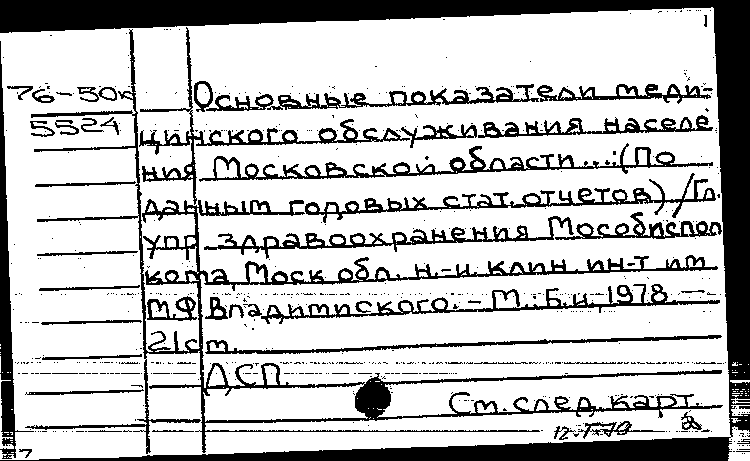 1
76-50к
5524
Основные показатели меди-
цинского обслуживания населе
ния Московской области...:(По
данным годовых стат. отчетов)./Гл.
упр здравоохранения Мособлиспол
кома, Моск обл. н.-и. клин. ин-т им
М.Ф Владимиского. - М.: Б.и., 1978. -
21см.
ДСП.
См. след. карт.
2
7